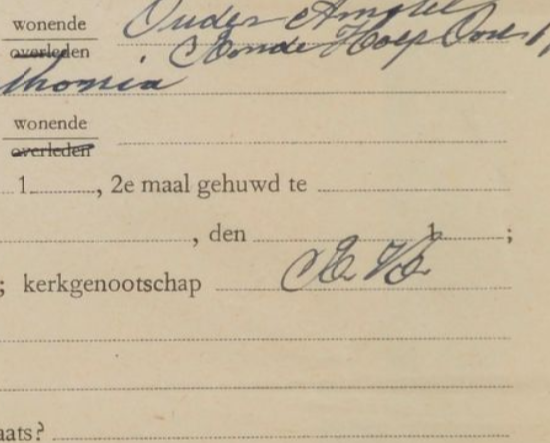 wonende Ouder Amstel
overleden Ronde Hoep Oost
thonia
wonende
overleden
1........, 2e maal gehuwd te
, den 1 ;
; kerkgenootschap R.K.
aats?